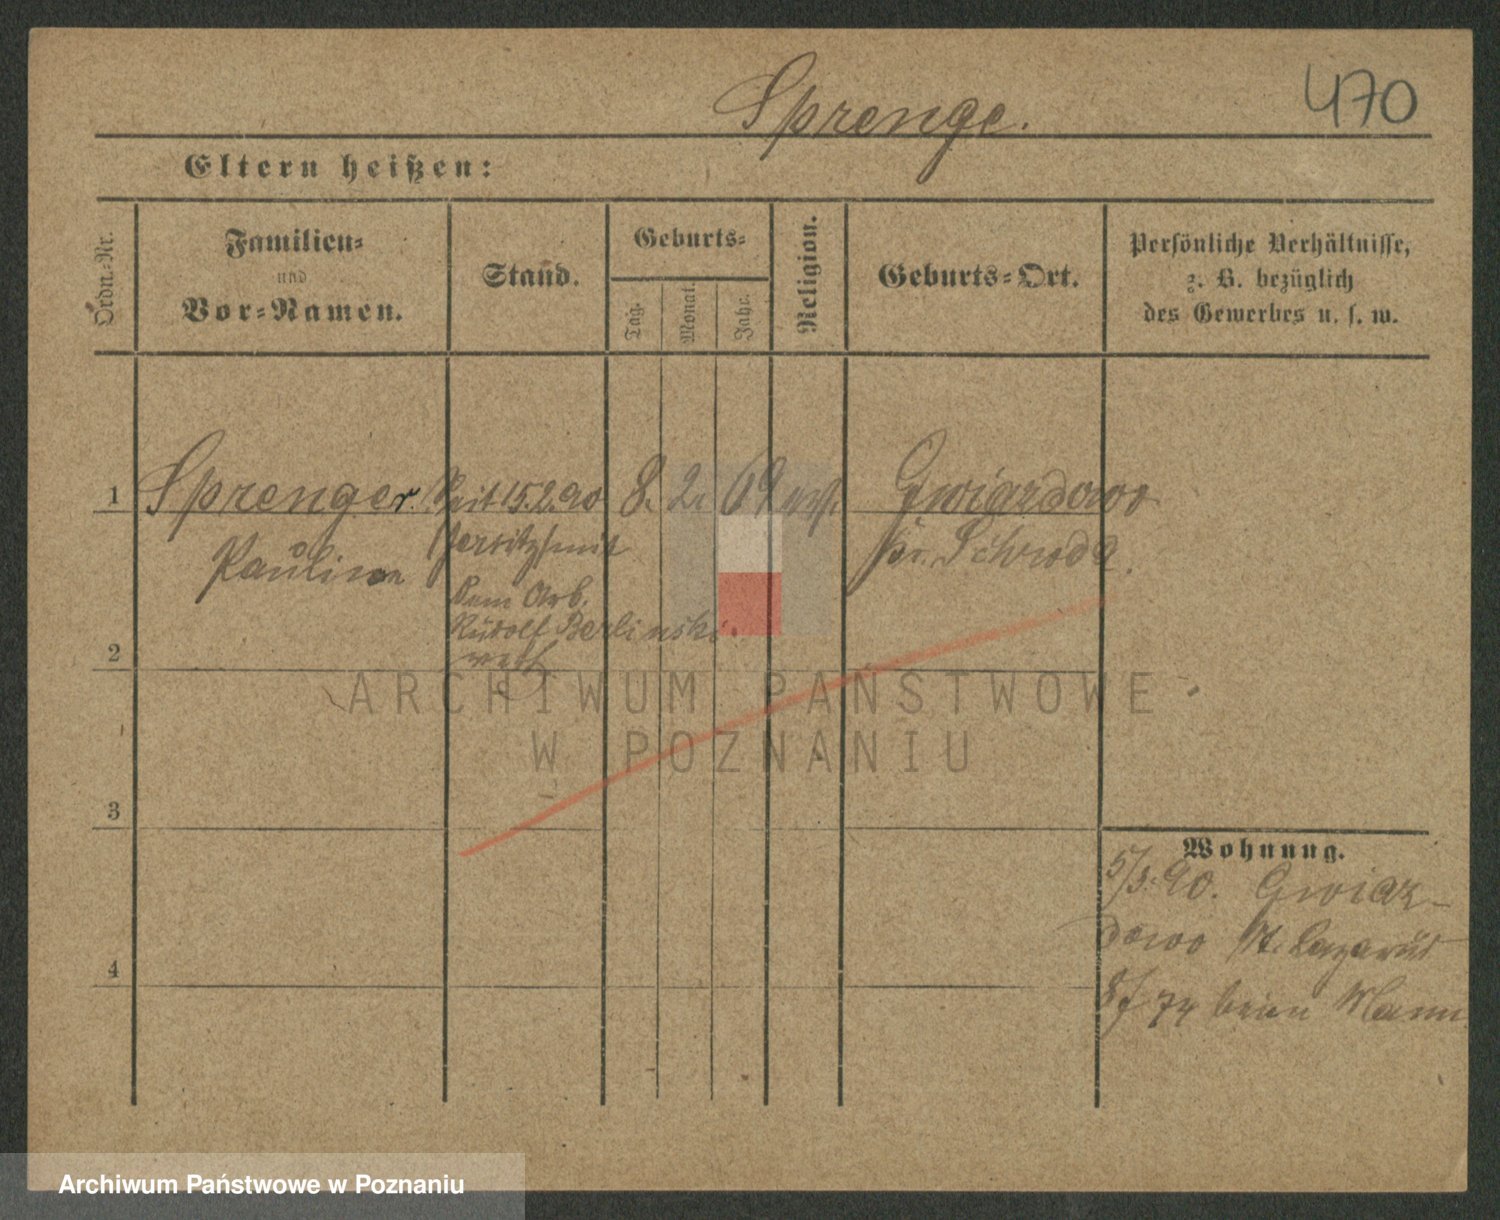 470
Sprenge.
Eltern heißen:
Ordn.-Nr.
Familien-
und
Vor-Namen.
Stand.
Geburts-
Tag.
Monat.
Jahr.
Religion.
Geburts-Ort.
Persönliche Verhältnisse,
z. B. bezüglich
des Gewerbes u. s. w.
1 Sprenger. Seit 15.2.90 8. 2. 69 Gwiazdowo
Pauline Jersitz mit Kr. Schroda.
dem Arb.
Rudolf Berlinski.
verh
2
3
4
Wohnung.
5/3.90. Gwiaz-
dowo St. Lazarus
74 beim Mann
ARCHIWUM PAŃSTWOWE
W POZNANIU
Archiwum Państwowe w Poznaniu